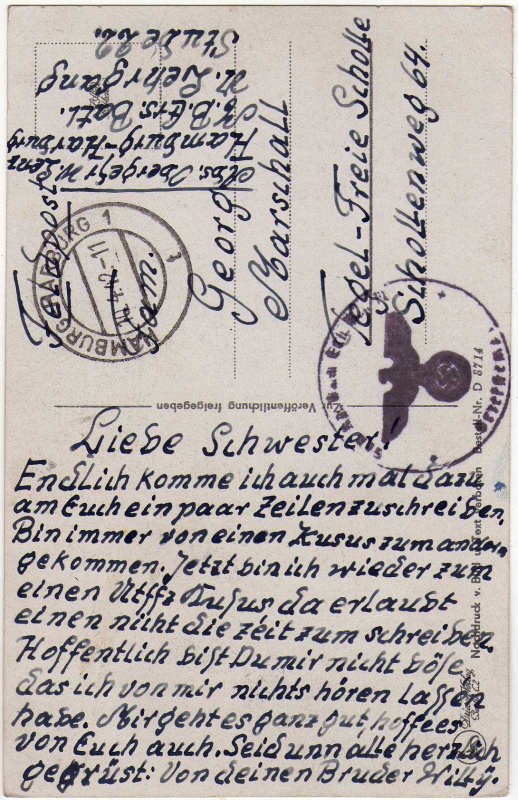 Stube 22.
II. Lehrgang
K.B. Ers. Batl.
Hamburg-Harburg
Abs. Obergefr W. Lenz
Feldpost
HAMBURG-HARBURG 1
42.-11
An
Georg
Marschall
Tegel-Freie Scholle
Schollenweg 64.
Zur Veröffentlichung freigegeben
Nachdruck v. Bild u. Text verboten Bestell-Nr. D 8714
Liebe Schwester!
Endlich komme ich auch mal dazu
am Euch ein paar Zeilen zu schreiben,
Bin immer von einen Kusus zum andern
gekommen. Jetzt bin ich wieder zum
einen Utffz Kusus da erlaubt
einen nicht die Zeit zum schreiben
Hoffentlich bist Du mir nicht böse
das ich von mir nichts hören lassen
habe. Mir geht es ganz gut, hoffe es
von Euch auch. Seid unn alle herzlich
gegrüst: Von deinen Bruder Willy.